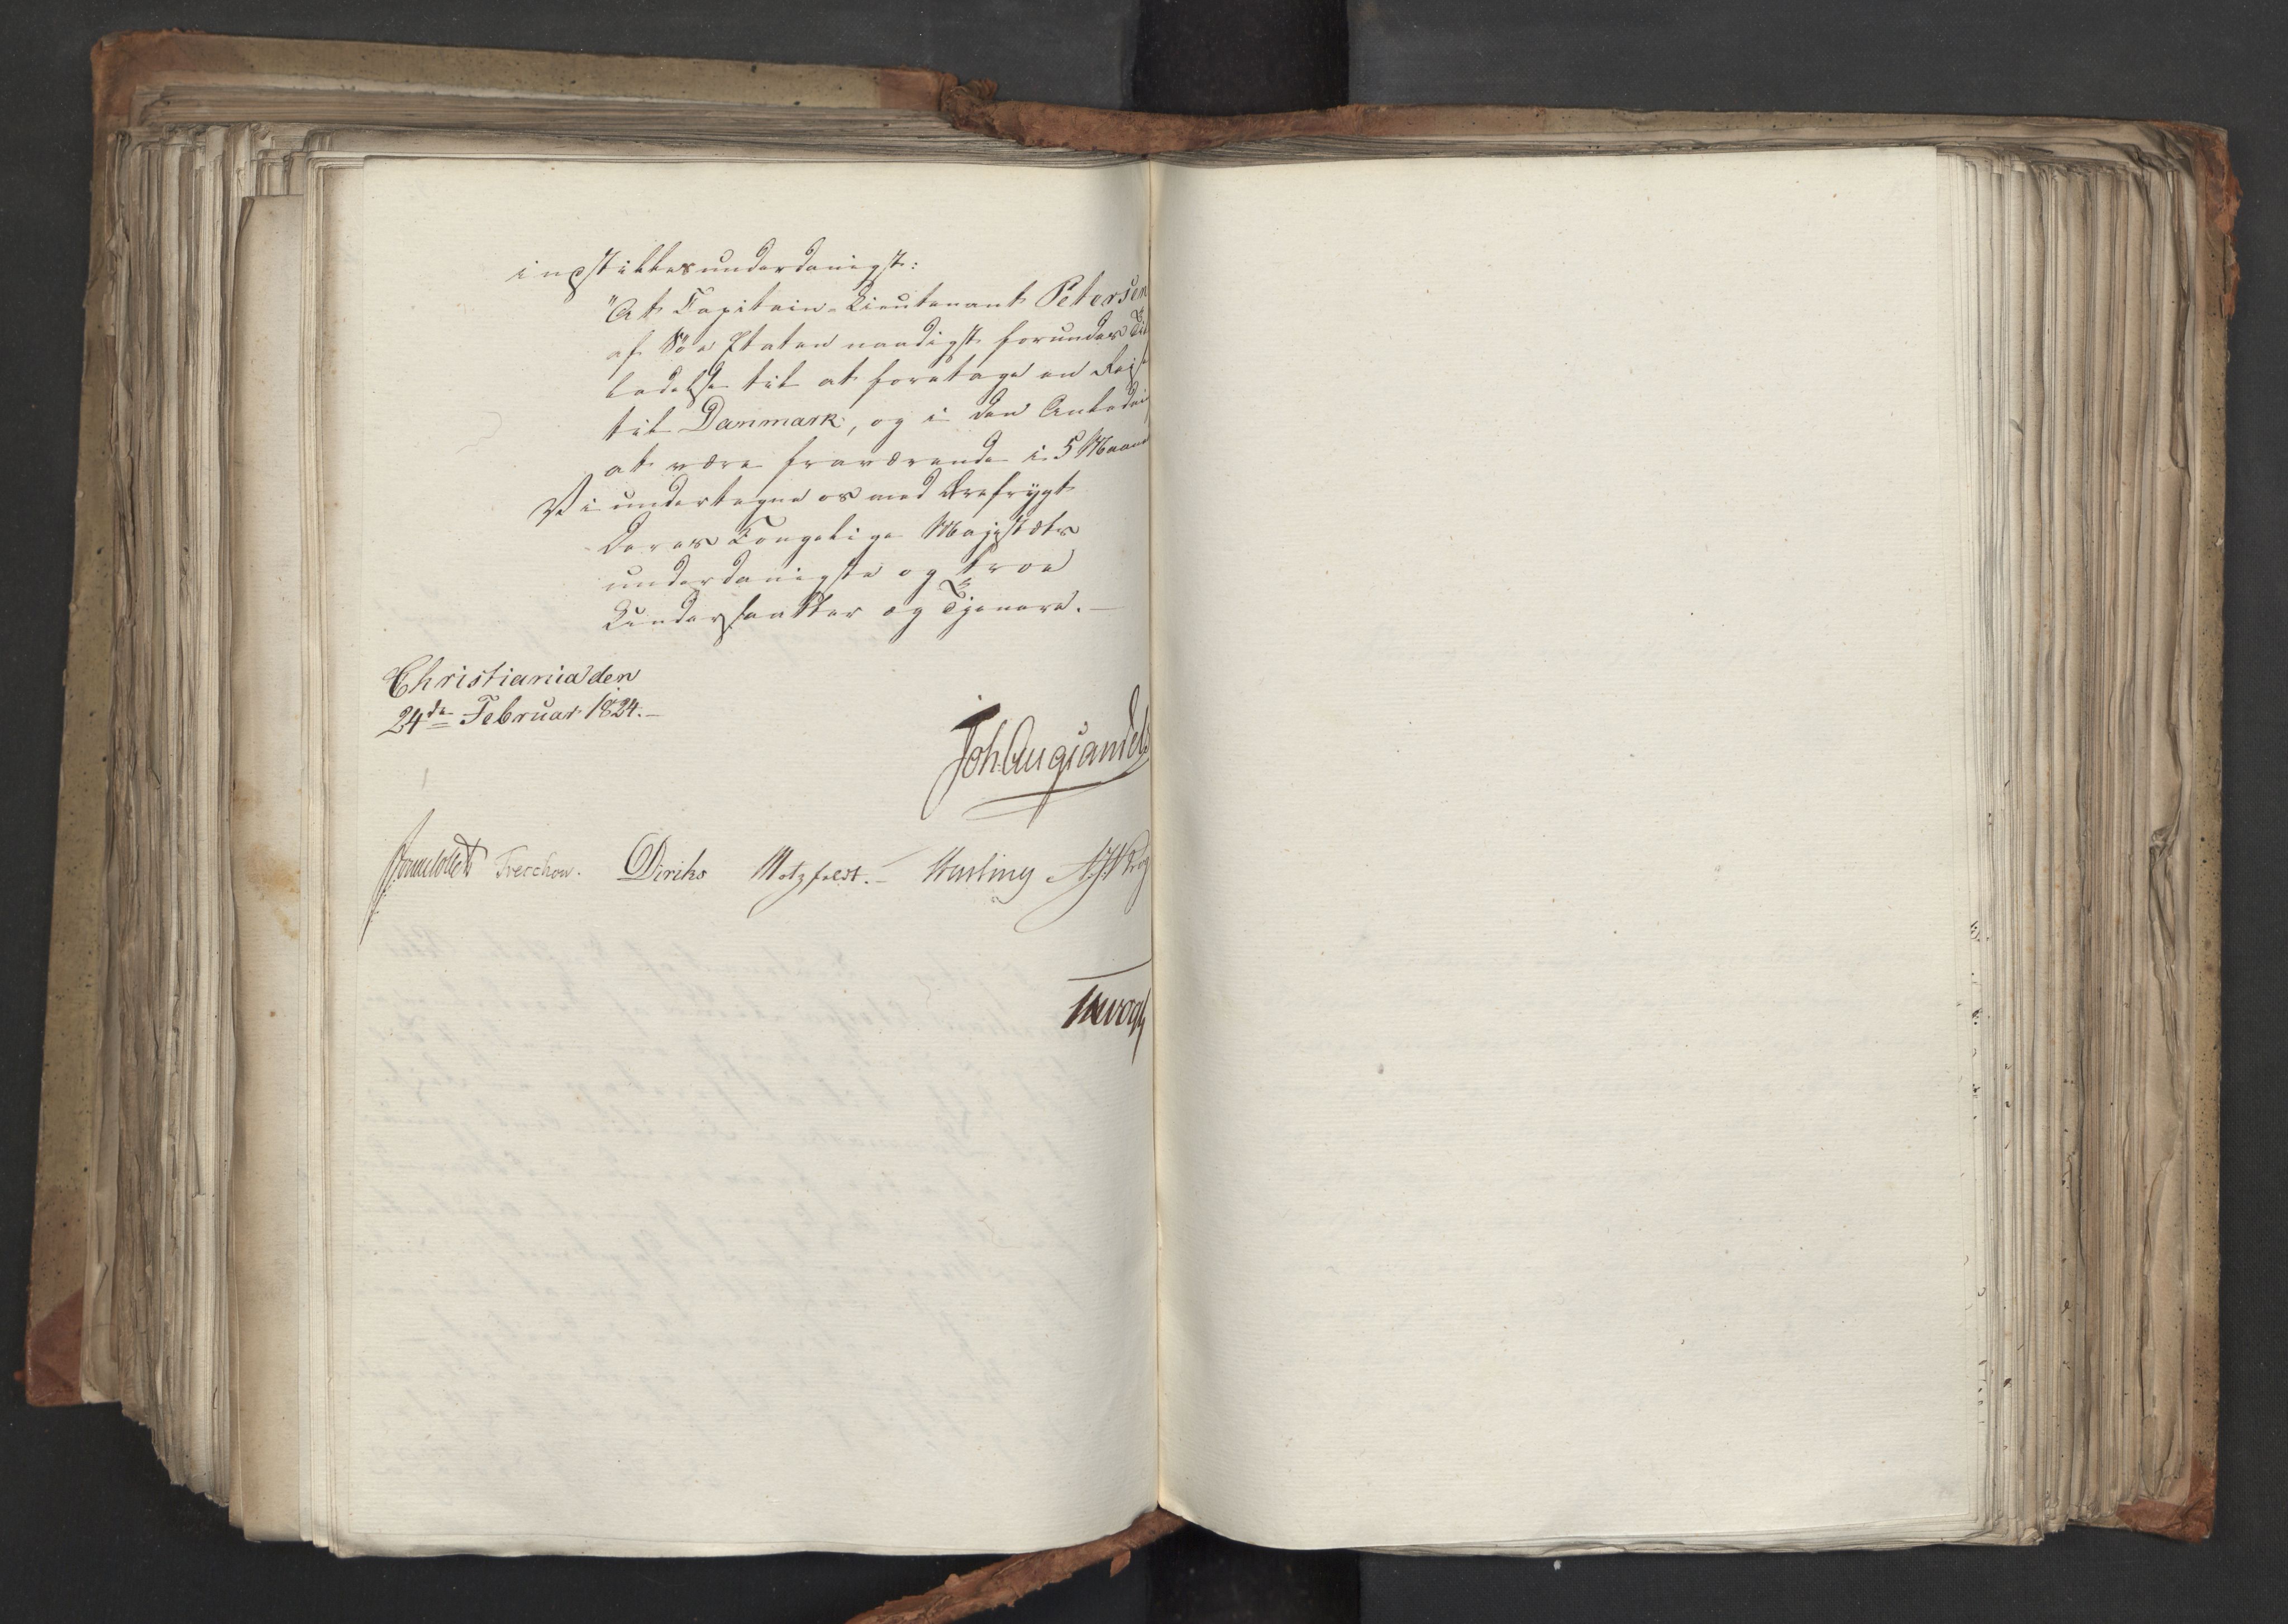 indstilles underdanigst:
"At Capitain-Lieutenant Petersen
af Søe Etaten naadigst forundes Til
ladelse til at foretage en Reise
til Danmark, og i den Anledni
at være fraværende i 5 Maane
Vi undertegne os med Ærefrygt
Deres Kongelige Majestæts
underdanigste og troe
Undersaatter og Tjenere.—
Christiania den
24de Februar 1824.—
Joh. Aug Sandels
Sommerhielm Treschow. Diriks Motzfeldt.— Fasting NJ Krog